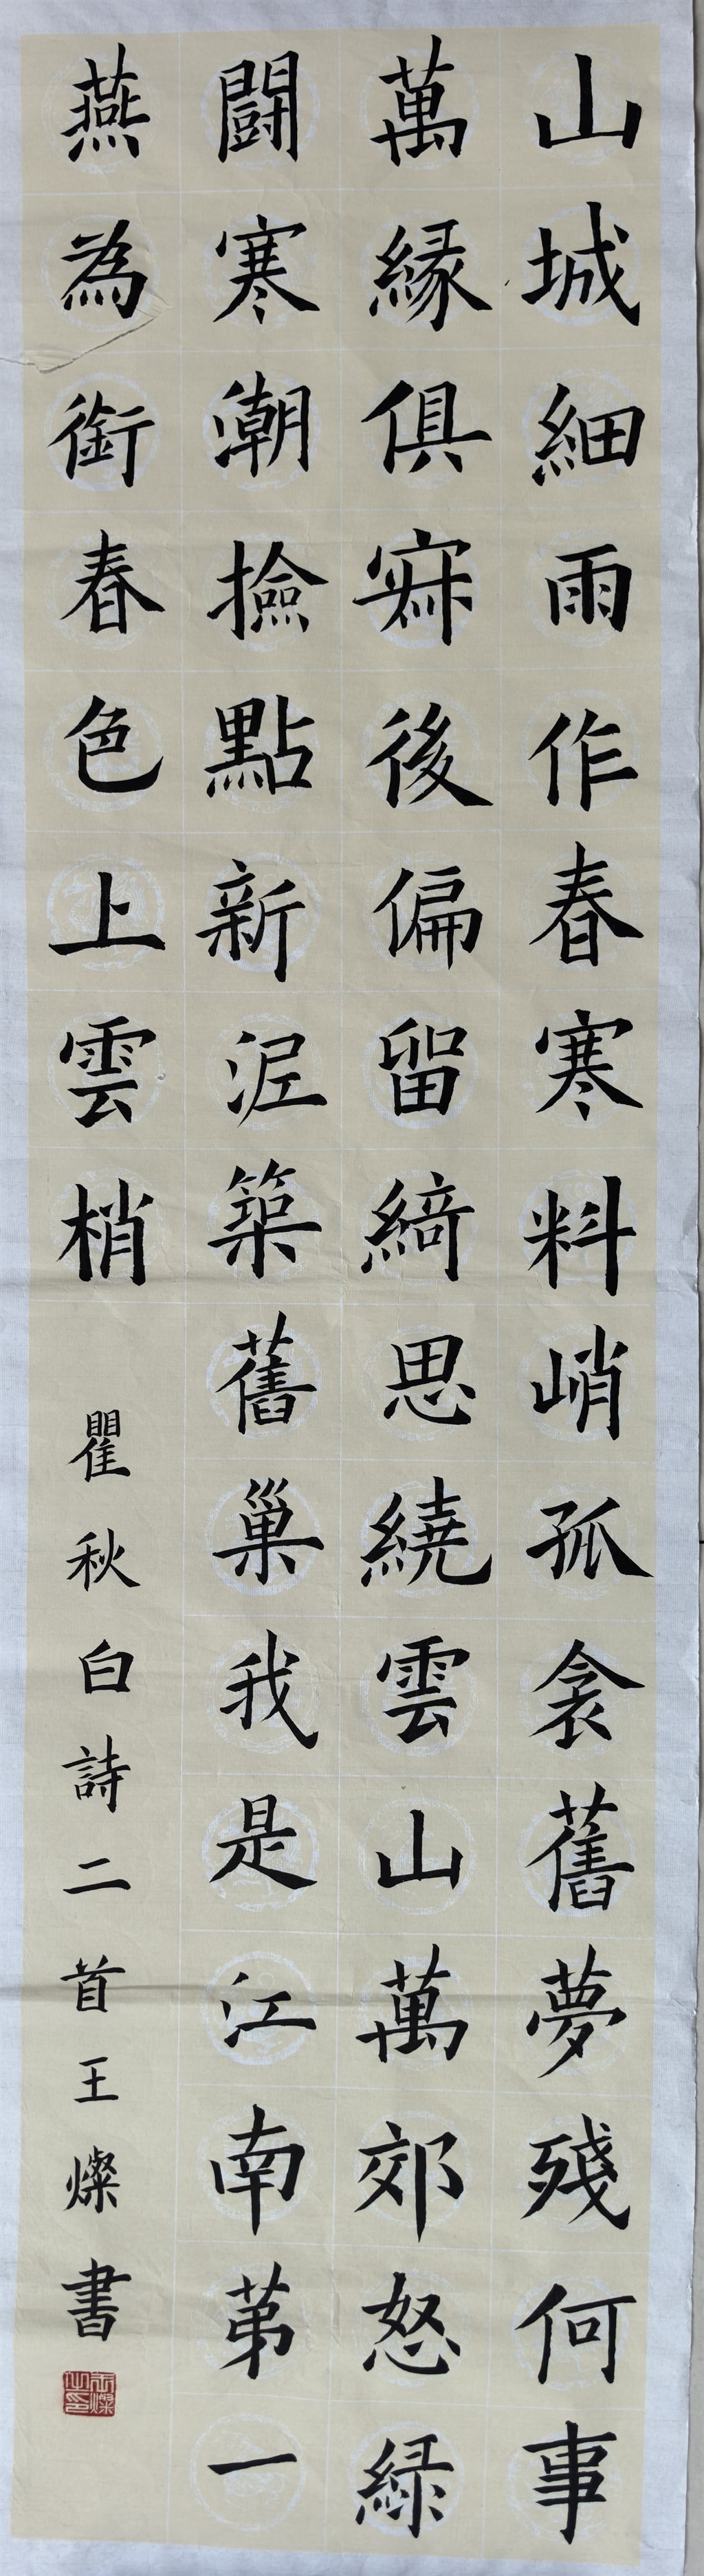 山城細雨作春寒料峭孤衾舊夢殘何事
萬緣俱寂後偏留綺思繞雲山萬郊怒綠
鬪寒潮撿點新泥築舊巢我是江南第一
燕為銜春色上雲梢
瞿秋白詩二首王燦書